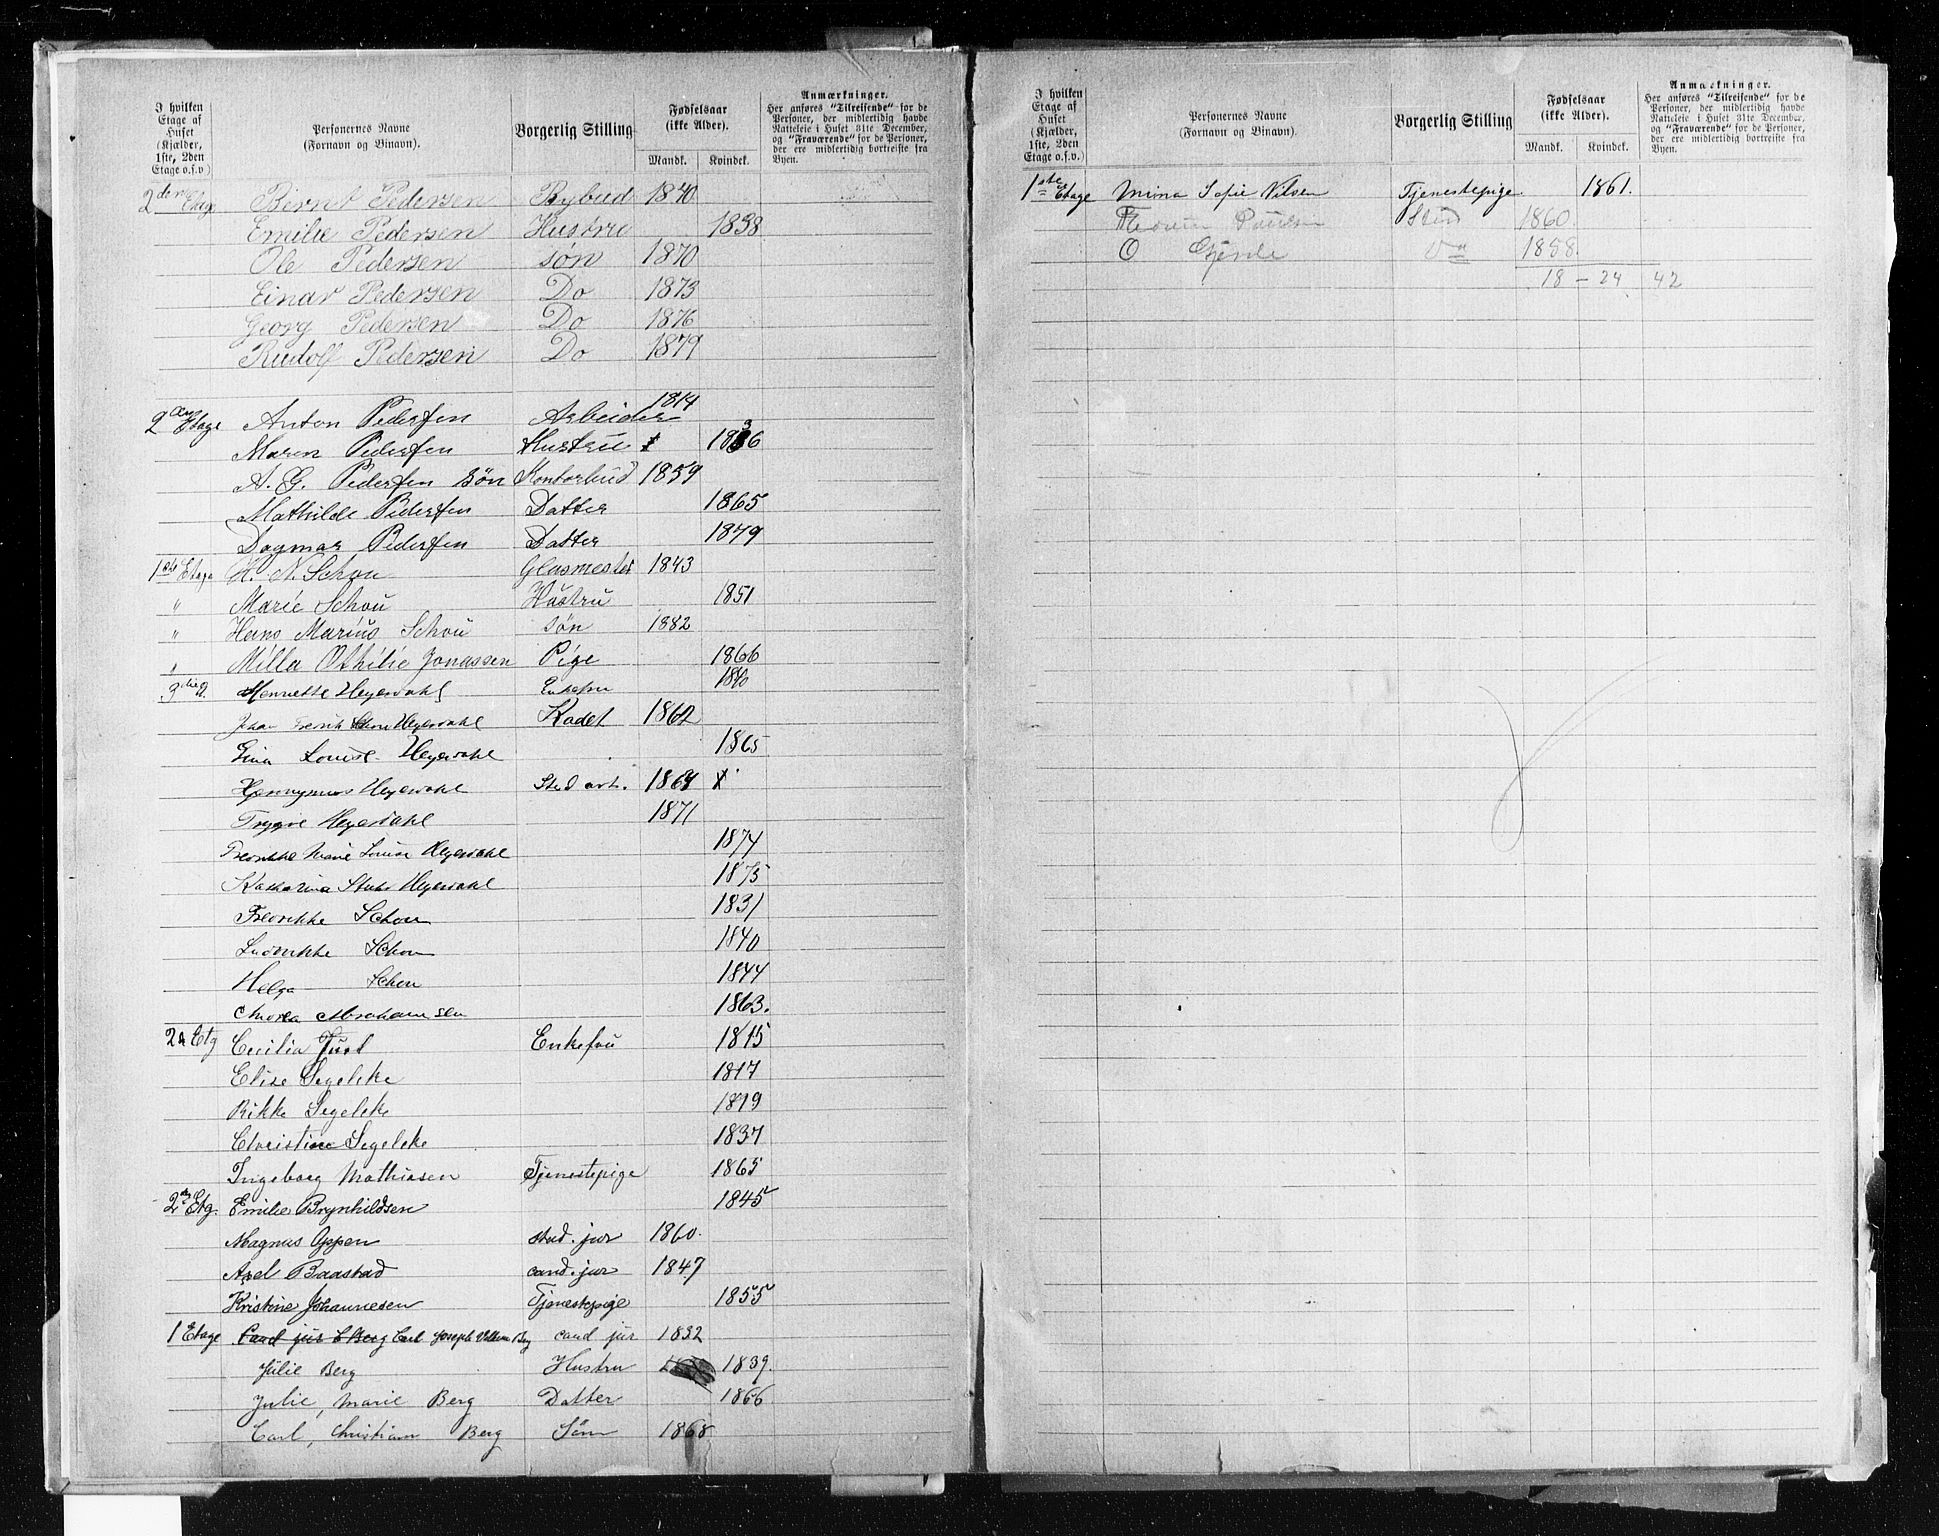 I hvilken Etage af Huset (Kjælder, 1ste, 2den Etage o.s.v)
Personernes Navne (Fornavn og Binavn).
Borgerlig Stilling
Fødselsaar (ikke Alder).
Mandk. Kvindek.
Anmærkninger.
Her anføres "Tilreisende" for de Personer, der midlertidig havde Natteleie i Huset 31te December, og "Fraværende" for de Personer, der ere midlertidig bortreiste fra Byen.
2den Etage Bernt Pedersen Bybud 1840
Emilie Pedersen Hustru 1838
Ole Pedersen søn 1870
Einar Pedersen Do 1873
Georg Pedersen Do 1876
Rudolf Pedersen Do 1879
2den Etage Anton Pedersen Arbeider 1814
Maren Pedersen Hustru 1836
A. G. Pedersen søn Kontorbud 1859
Mathilde Pedersen Datter 1865
Dagmar Pedersen Datter 1879
1ste Etage H. N. Schou Glasmester 1843
" Marie Schou Hustru 1851
" Hans Marius Schou søn 1882
" Milla Othilie Jonassen Pige 1866
3die Henriette Heyerdahl Enkefru 1840
Johan Fredrik Schou Heyerdahl Kadet 1862
Gina Louise Heyerdahl 1865
Hieronymus Heyerdahl Stud art. 1867
Trygve Heyerdahl 1871
Fredrikke Marie Louise Heyerdahl 1874
Katharina Heyerdahl 1875
Fredrikke Schou 1831
Ludvikke Schou 1840
Helga Schou 1844
Andrea Abrahamsen 1863.
2d Etg Cecilia Juel Enkefru 1815
Elise Segelcke 1817
Rikke Segelcke 1819
Christine Segelcke 1837
Ingeborg Mathiasen Tjenestepige 1865
2d Etg. Emilie Brynhildsen 1845
Magnus Oppen stud. jur 1860.
Axel Baastad cand. jur 1847
Kristine Johannesen Tjenestepige 1855
1 Etage Cand jur C Berg Carl Joseph Vilhelm Berg cand jur 1832
Julie Berg Hustru 1839.
Julie, Marie Berg Datter 1866
Carl, Christian Berg Søn 1868
I hvilken Etage af Huset (Kjælder, 1ste, 2den Etage o.s.v.)
Personernes Navne (Fornavn og Binavn).
Borgerlig Stilling
Fødselsaar (ikke Alder).
Mandk. Kvindek.
Anmærkninger.
Her anføres "Tilreisende" for de Personer, der midlertidig havde Natteleie i Huset 31te December, og "Fraværende" for de Personer, der ere midlertidig bortreiste fra Byen.
1ste Etage Mina Sofie Nilsen Tjenestepige 1861.
Stud 1860.
O Gjerde Do 1858.
18 - 24 42